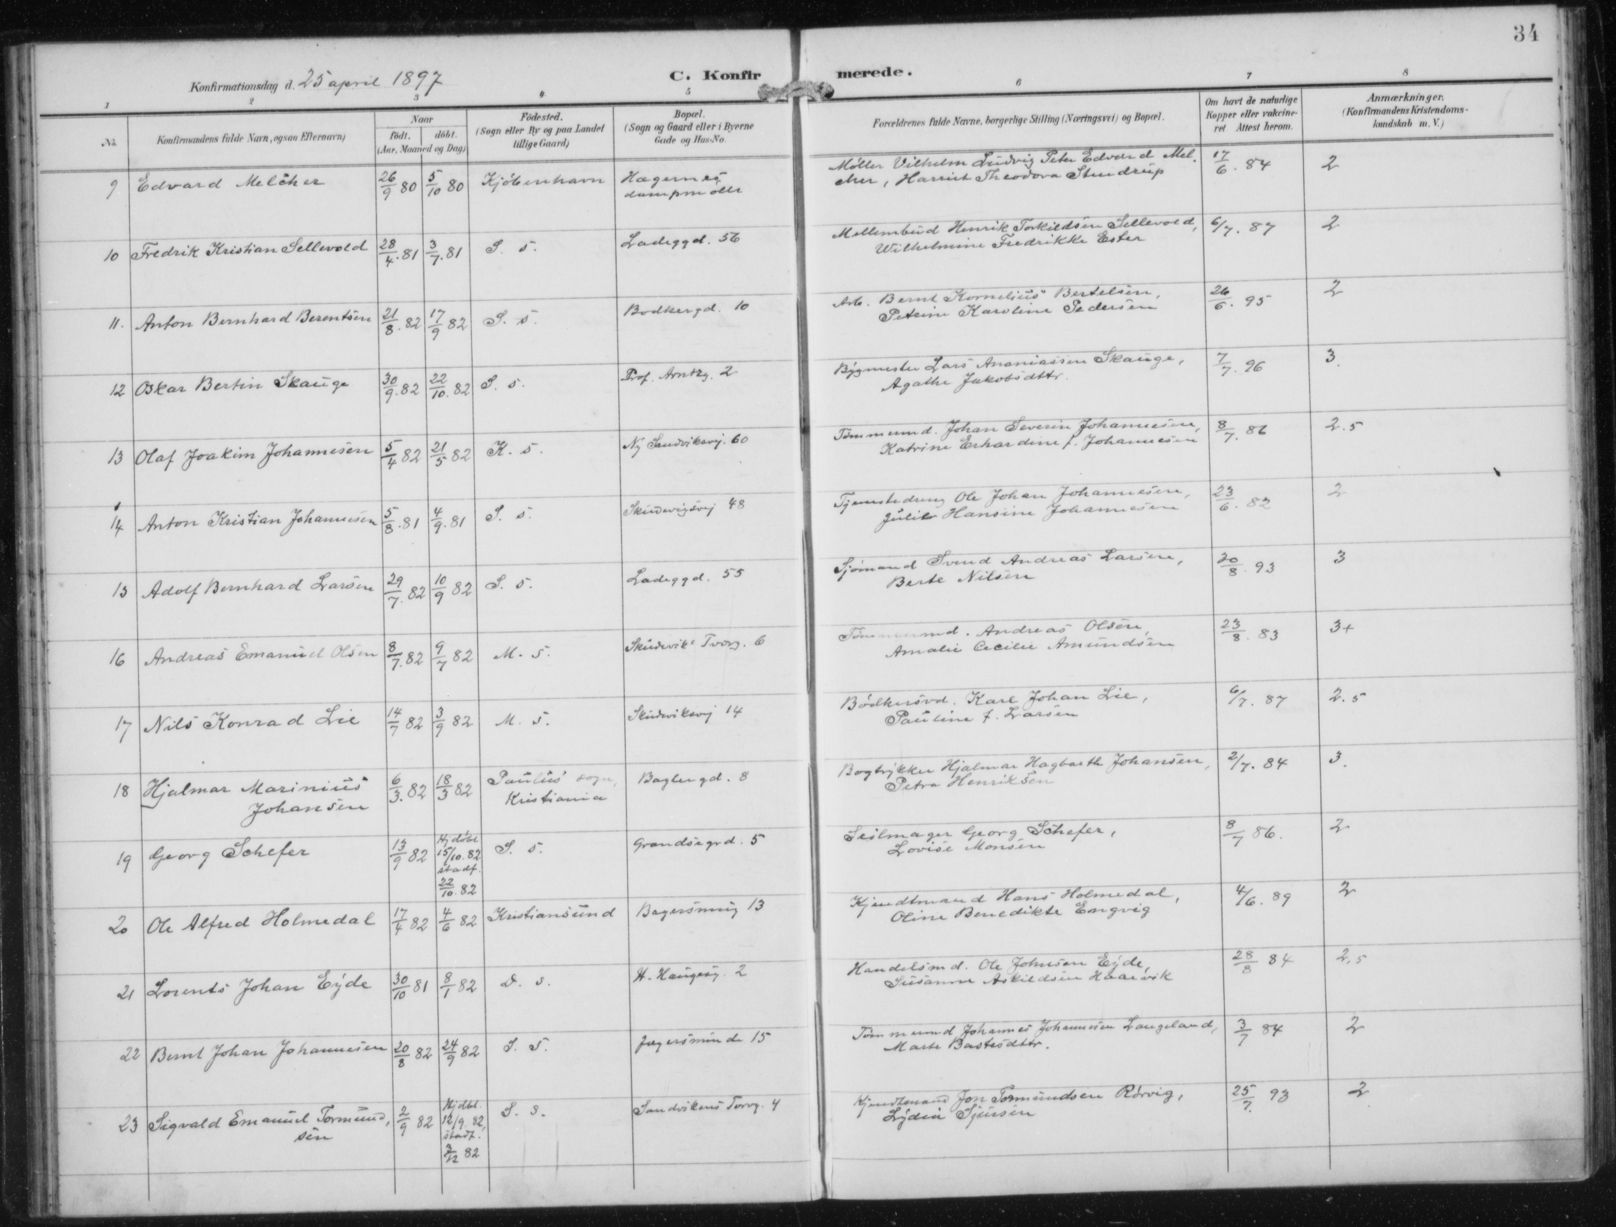 34
Konfirmationsdag d. 25 april 1897
C. Konfirmerede.
1 2 3 4 5 6 7 8
No.
Konfirmandens fulde Navn, ogsaa Efternavn)
Naar
født. døbt.
(Aar, Maaned og Dag)
Fødested.
(Sogn eller By og paa Landet
tillige Gaard)
Bopæl.
(Sogn og Gaard eller i Byerne
Gade og Hus-No.
Forældrenes fulde Navne, borgerlige Stilling (Næringsvei) og Bopæl.
Om havt de naturlige
Kopper eller vakcine-
ret Attest herom.
Anmærkninger.
(Konfirmandens Kristendoms-
kundskab m. V.)
9 Edvard Melcher 26/9 80 5/10 80 Kjöbenhavn Hægernes dampmölle Møller Vilhelm Ludvig Peter Edvard Mel-
cher, Harriet Theodora Stendrup 17/6. 84 2
10 Fredrik Kristian Sellevold 28/4. 81 3/7. 81 S. s. Ladeggd. 56 Mellembud Henrik Torkildsen Sellevold,
Wilhelmine Fredrikke Ester 6/7. 87 2
11. Anton Bernhard Berentsen 21/8. 82 17/9 82 S. s. Bødkergd. 10 Arb. Bernt Kornelius Bertelsen,
Petrine Karoline Pedersen 26/6. 95 2
12 Oskar Bertin Skauge 30/9. 82 22/10. 82 S. s. Prof. Arntzg. 2 Bygmester Lars Ananiassen Skauge,
Agathe Jakobsdttr. 7/7. 96 3.
13 Olaf Joakim Johannesen 5/4 82 21/5 82 K. s. Ny Sandviksvj. 60 Tømmermd. Johan Severin Johannesen,
Katrine Erhardine f. Johannesen 8/7. 86 2.5
14 Anton Kristian Johannesen 5/8. 81 4/9. 81 S. s. Skudevigsvej 48 Tjenestedreng Ole Johan Johannesen,
Julie Hansine Johannesen 23/6. 82 2
15 Adolf Bernhard Larsen 29/7. 82 10/9 82 S. s. Ladeggd. 55 Sjømand Svend Andreas Larsen,
Berte Nilsen 20/8. 93 3
16 Andreas Emanuel Olsen 8/7. 82 9/7 82 M. s. Skudevik's Tvorg. 6 Tømmermd. Andreas Olsen,
Amalie Cecilie Amundsen 23/8. 83 3+
17 Nils Konrad Lie 14/7 82 3/9 82 M. s. Skudeviksvej 14 Bødkersvd. Karl Johan Lie,
Pauline f. Larsen 6/7. 87 2.5
18 Hjalmar Marinius
Johansen 6/3. 82 18/3 82 Paulus' sogn,
Kristiania Baglergd. 8 Bogtrykker Hjalmar Hagbarth Johansen,
Petra Henriksen 2/7. 84 3.
19 Georg Schefer 13/9 82 Hj. døbt
15/10. 82
stadf.
22/10. 82 S. s. Grandsegrd. 5 Seilmager Georg Schefer,
Lovise Monsen 8/7 86. 2
20 Ole Alfred Holmedal 17/4 82 4/6 82 Kristiansund Bagersmug 13 Kjendtmand Hans Holmedal,
Oline Benedikte Engvig 4/6. 89 2
21 Lorents Johan Eyde 30/10 81 8/1 82 D. s. H. Haugesg. 2 Handelsmd. Ole Johnsen Eyde,
Susanne Askildsen Haarvik 28/8 84 2.5
22 Bernt Johan Johannesen 20/8 82 24/9 82 S. s. Jægersminde 15 Tømmermd Johannes Johannesen Langeland,
Marte Bastesdttr. 3/7 84 2
23 Sigvald Emanuel Tormund,
sen 2/9 82 Hjdbt.
12/9 82,
stadf.
3/12 82 S. s. Sandvikens Torvg. 4 Kjendtmand Jon Tormundsen Rørvig,
Lydia Sjursen 25/7. 93 2